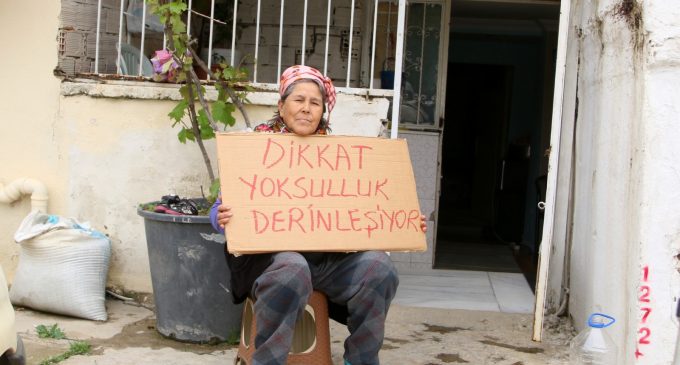 DİKKAT
YOKSULLUK
DERİNLEŞİYOR
1272